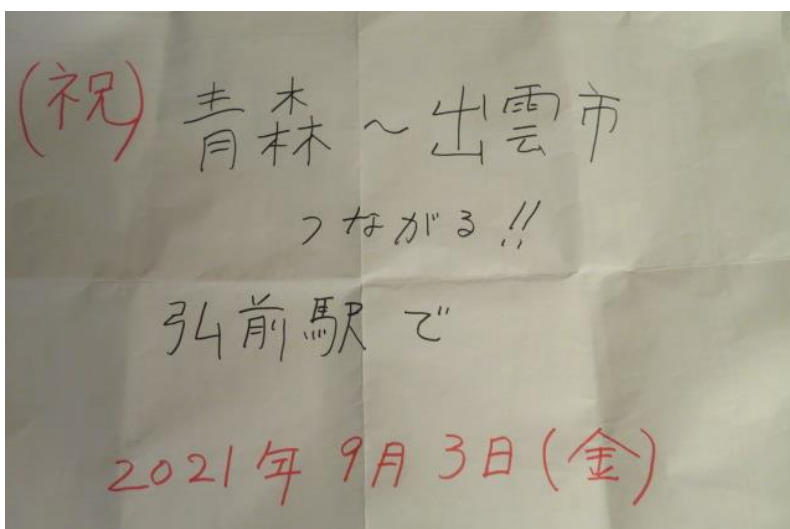 (祝) 青森～出雲市
つながる!!
弘前駅で
2021年9月3日(金)